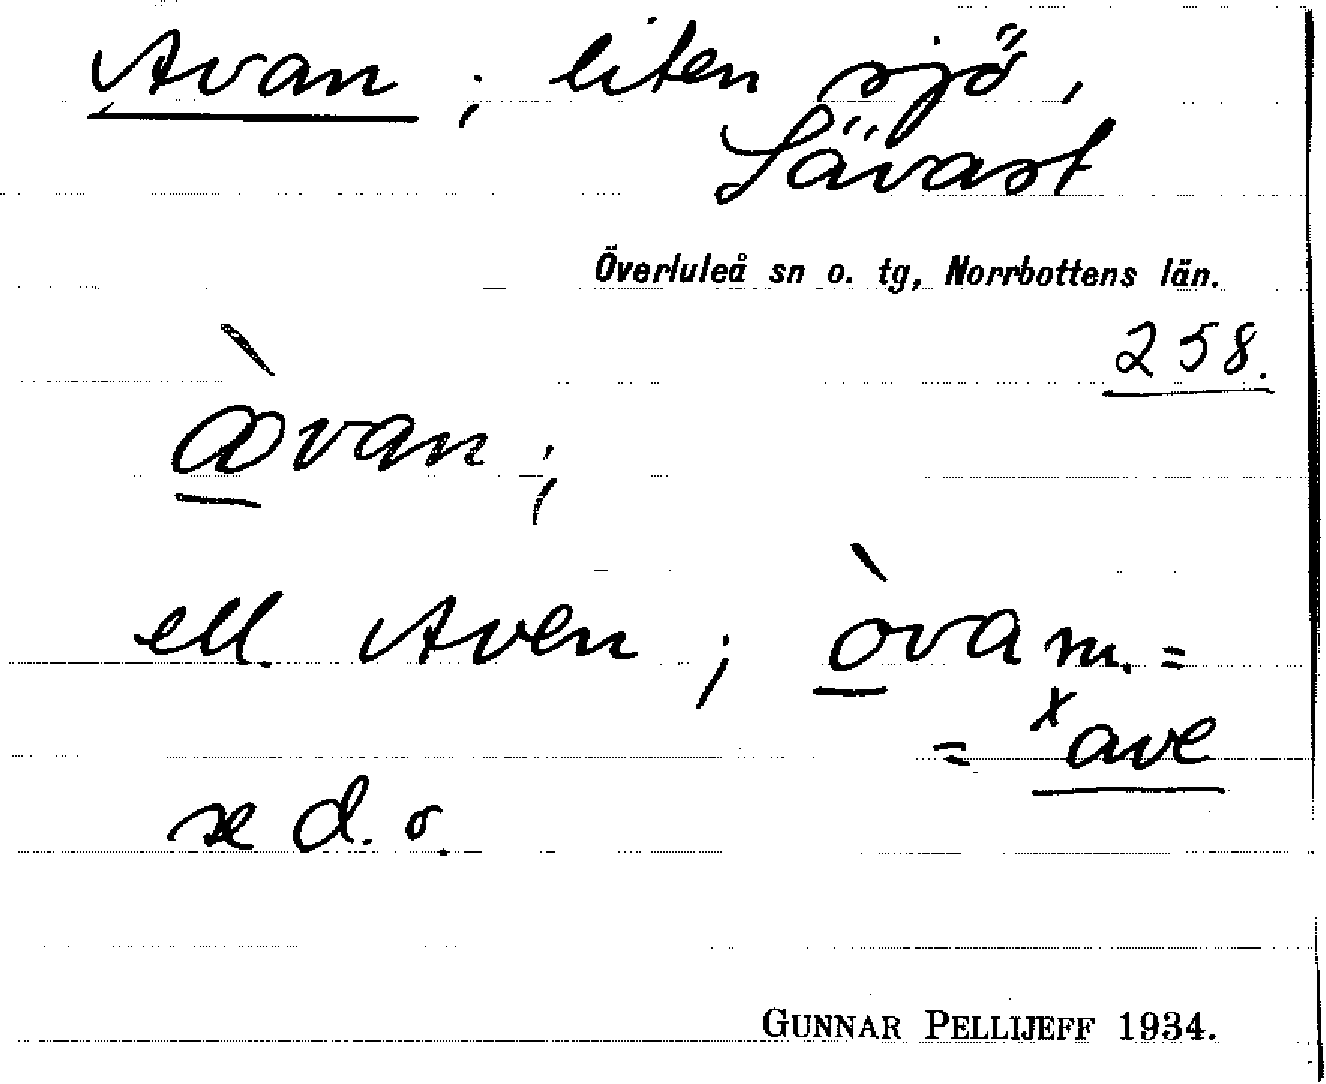 Avan ; liten sjö,
Sävast
Överluleå sn o. tg, Norrbottens län.
258.
àvan ;
ell. Aven ; òva m. =
= ˣave
se d. o.
GUNNAR PELLIJEFF 1934.